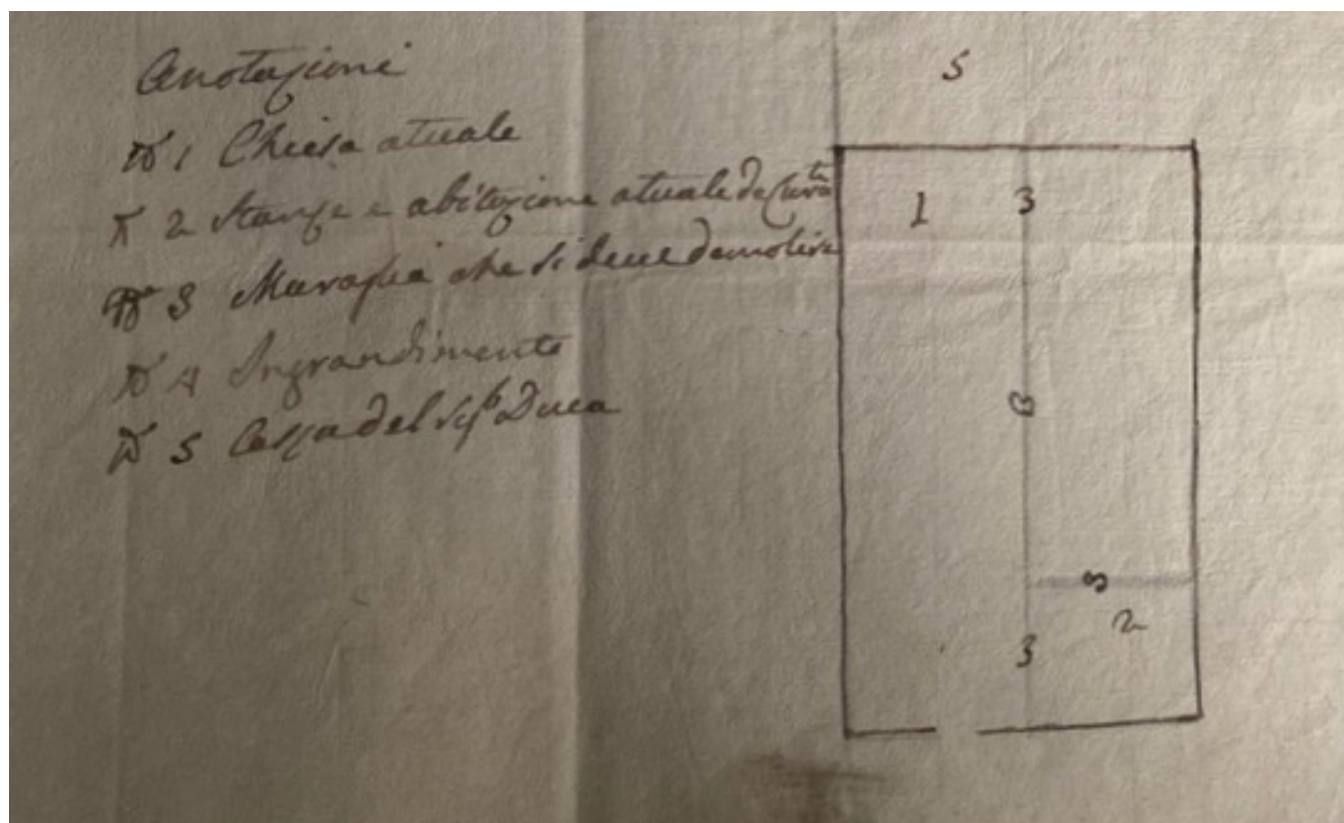 Anotazioni
N 1 Chiesa atuale
N 2 Stanze e abitazione atuale de Curti
N 3 Muraglia che si deve demolire
N 4 Ingrandimento
N 5 Cassa del Duca
5
1 3
3
3
2
3